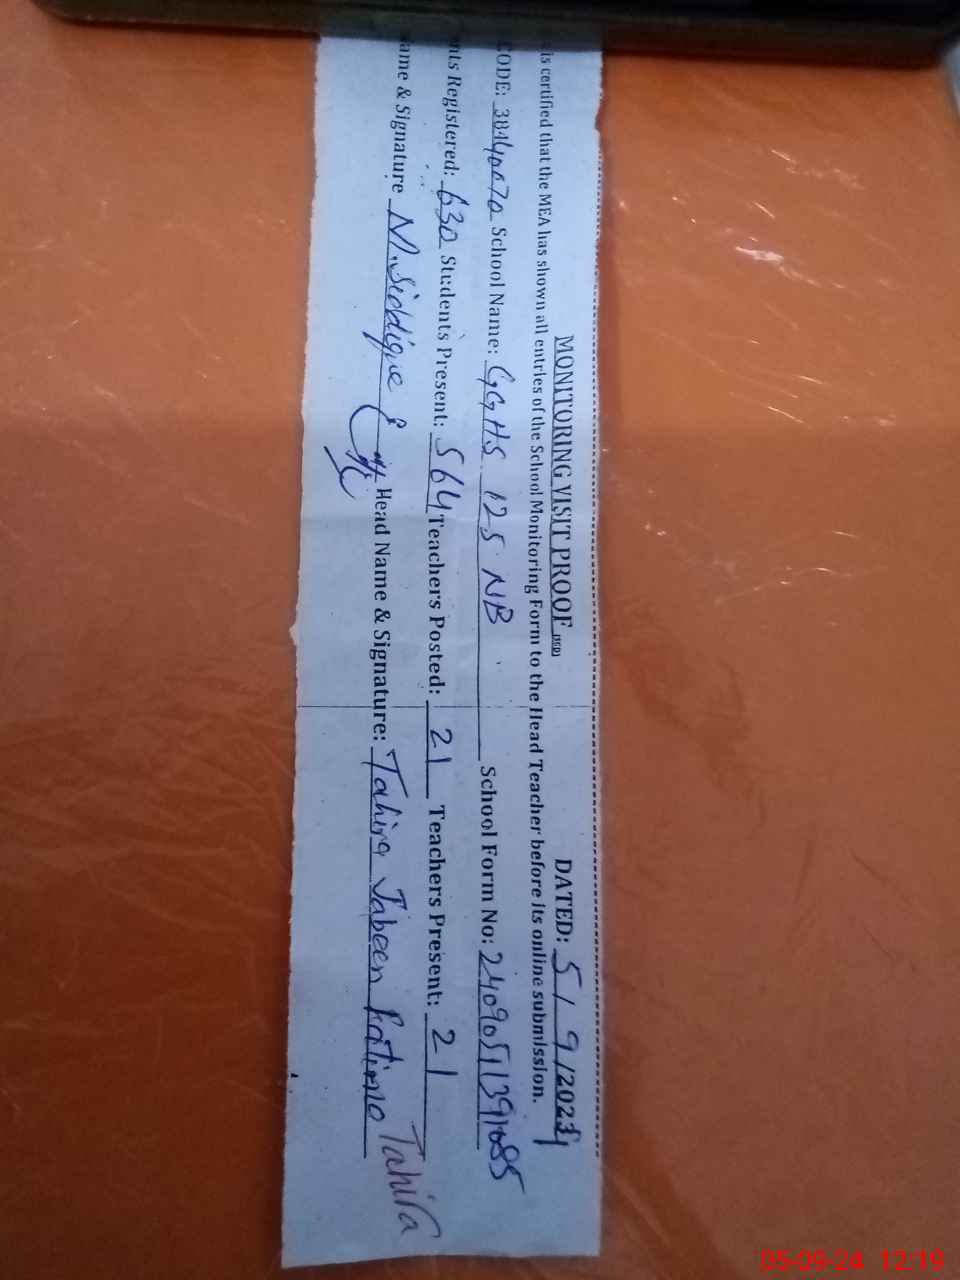 MONITORING VISIT PROOF (SED) DATED: 5/9/2024
is certified that the MEA has shown all entries of the School Monitoring Form to the Head Teacher before its online submission.
CODE: 38140070 School Name: GGHS 125 NB School Form No: 240905113911085
nts Registered: 630 Students Present: 564 Teachers Posted: 21 Teachers Present: 21
ame & Signature M. Siddique Head Name & Signature: Tahira Jabeen Fatima Tahira
05-09-24 12:19